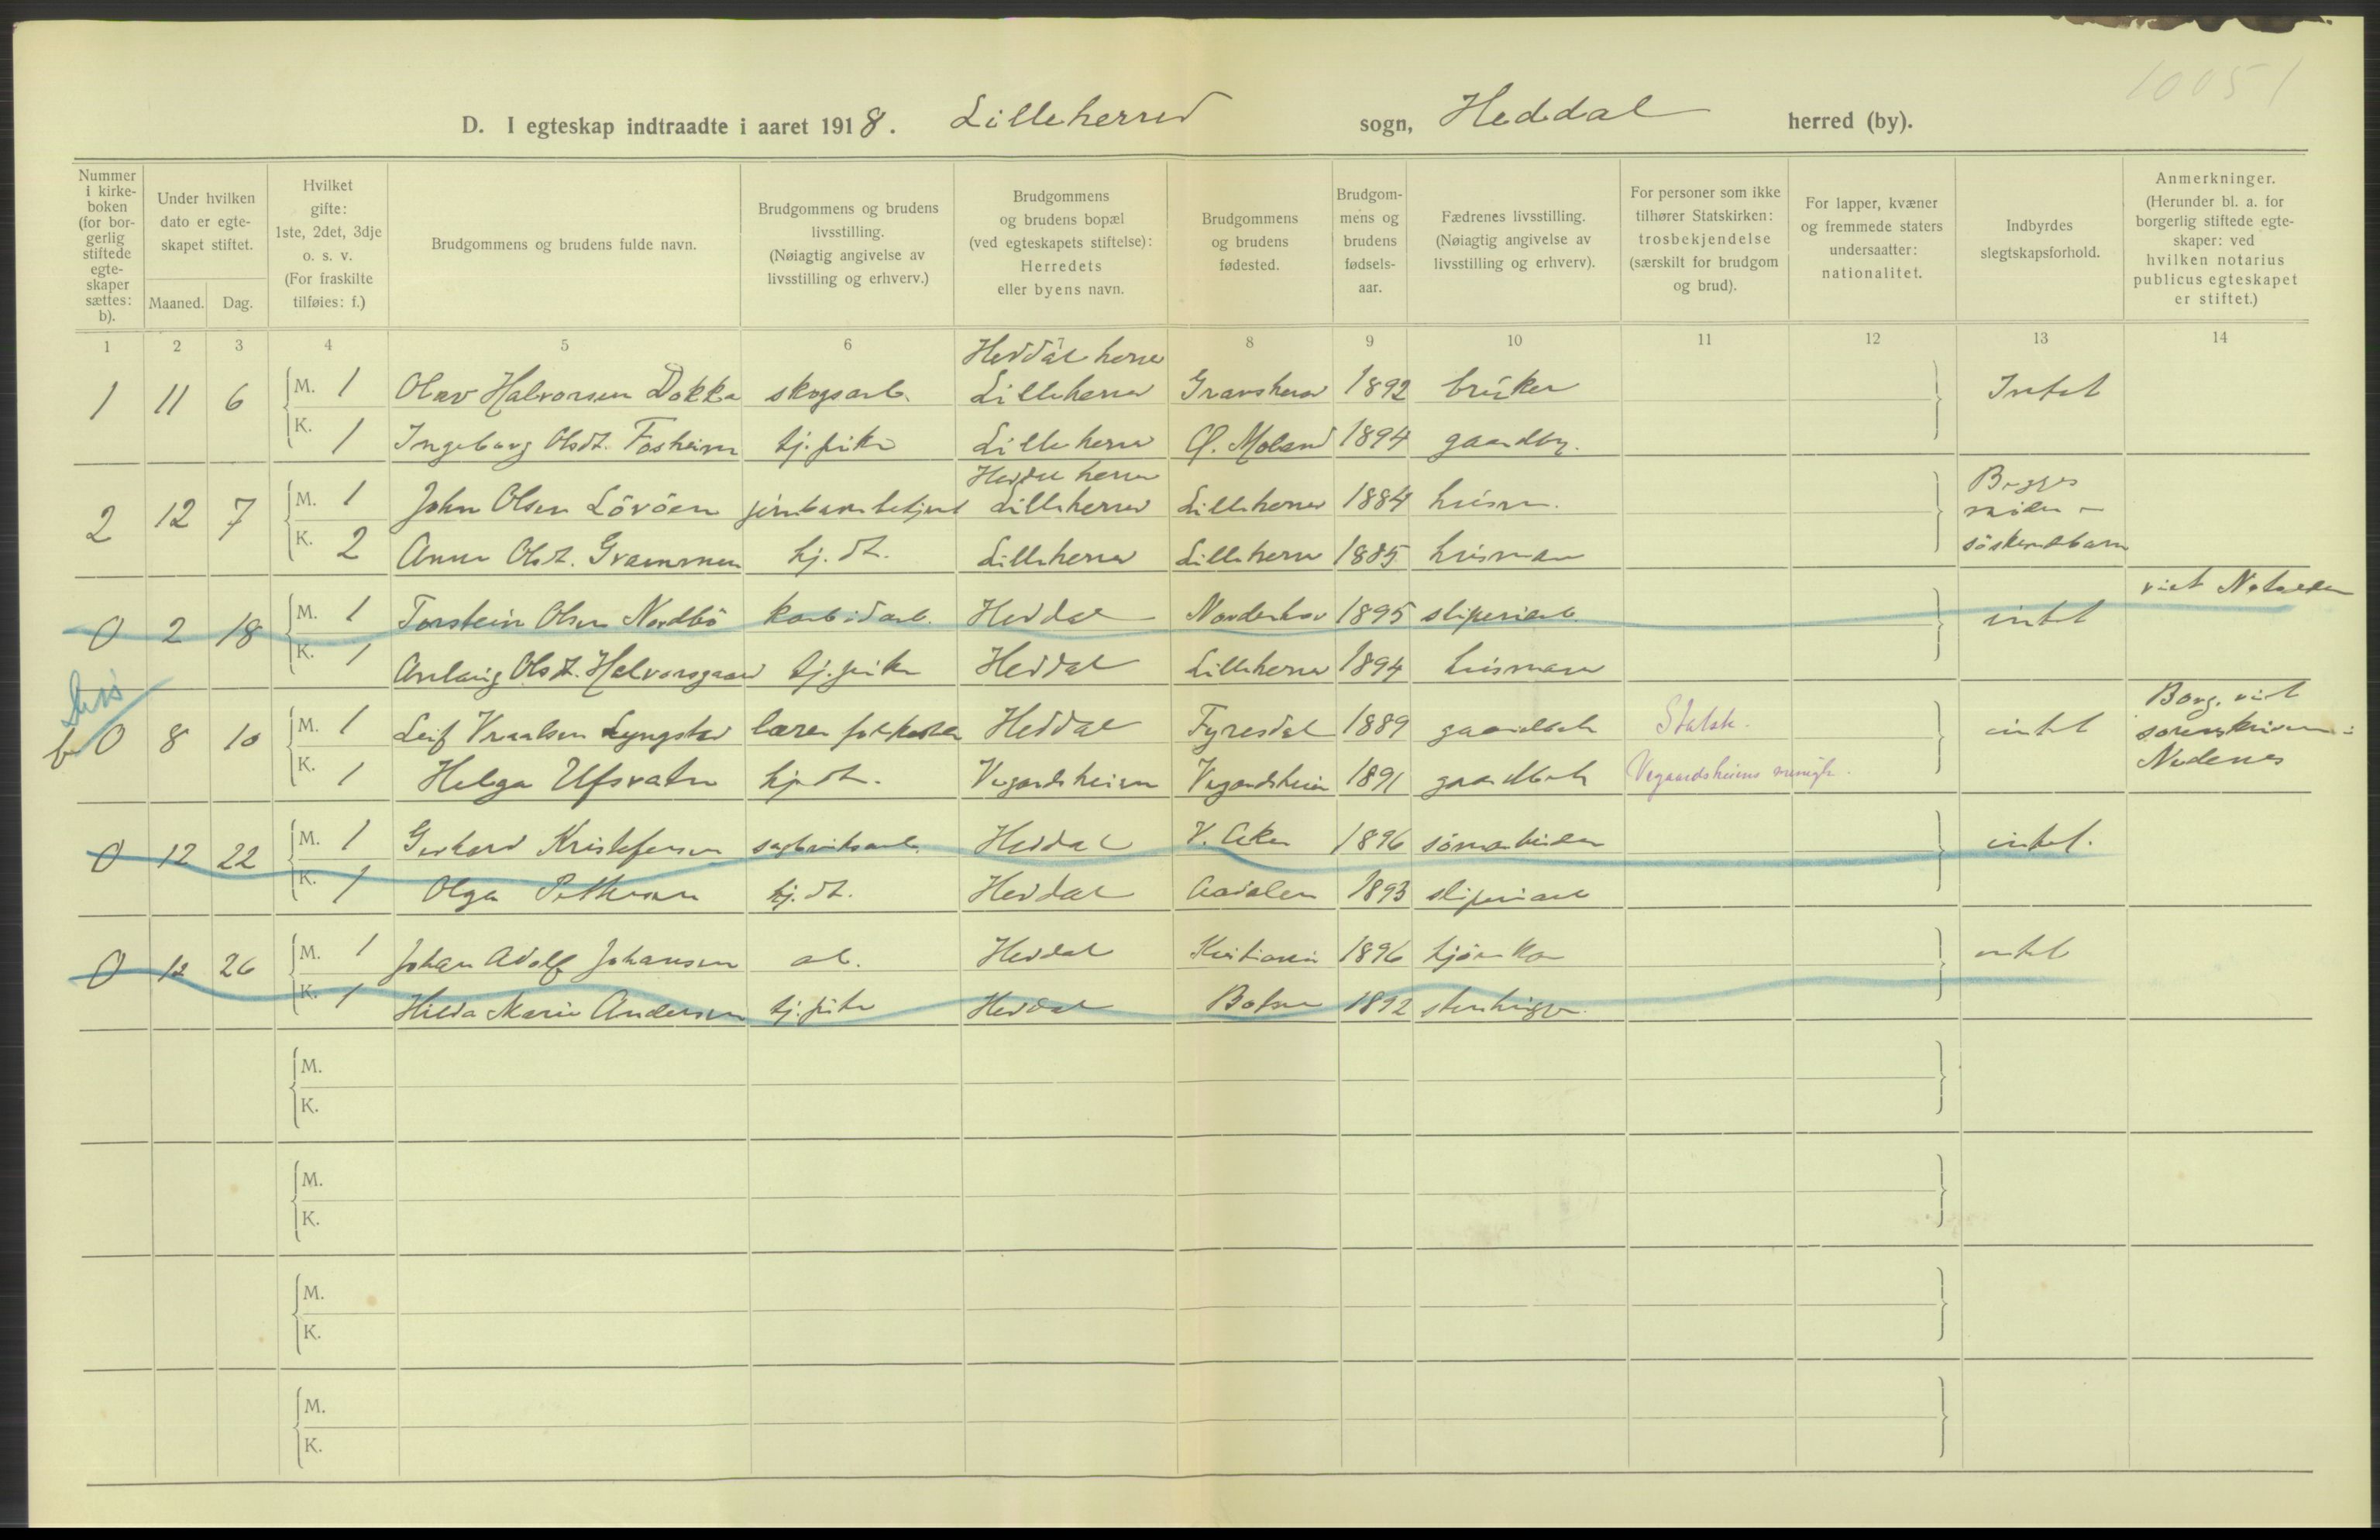 10051
D. I egteskap indtraadte i aaret 1918. Lilleherred sogn, Heddal herred (by).
Nummer i kirke-boken (for bor-gerlig stiftede egte-skaper sættes: b).
Under hvilken dato er egte-skapet stiftet.
Maaned. Dag.
Hvilket gifte: 1ste, 2det, 3dje o. s. v. (For fraskilte tilføies: f.)
Brudgommens og brudens fulde navn.
Brudgommens og brudens livsstilling. (Nøiagtig angivelse av livsstilling og erhverv.)
Brudgommens og brudens bopæl (ved egteskapets stiftelse): Herredets eller byens navn.
Brudgommens og brudens fødested.
Brudgom-mens og brudens fødsels-aar.
Fædrenes livsstilling. (Nøiagtig angivelse av livsstilling og erhverv).
For personer som ikke tilhører Statskirken: trosbekjendelse (særskilt for brudgom og brud).
For lapper, kvæner og fremmede staters undersaatter: nationalitet.
Indbyrdes slegtskapsforhold.
Anmerkninger. (Herunder bl. a. for borgerlig stiftede egte-skaper: ved hvilken notarius publicus egteskapet er stiftet.)
1 2 3 4 5 6 7 8 9 10 11 12 13 14
Heddal herred
1 11 6 M. 1 Olav Halvorsen Dokka skogsarb. Lilleherred Gransherad 1892 bruker Intet
K. 1 Ingeborg Olsdt. Fosheim tj.pike Lilleherred Ø. Moland 1894 gaardbr.
Heddal herred
2 12 7 M. 1 John Olsen Lövöen jernbanebetjent Lilleherred Lilleherred 1884 husm. Begges
K. 2 Anne Olsdt. Grammen hj. dt. Lilleherred Lilleherred 1885 husman söskendebarn
0 2 18 M. 1 Torstein Olsen Nordbö karbidarb. Heddal Norderhov 1895 sliperiarb intet viet Notodden
K. 1 Anlaug Olsdt. Halvorsgaard tj.pike Heddal Lilleherred 1894 husmann
b 0 8 10 M. 1 Leif Vraalsen Lyngstad lærer folkeskolen Heddal Fyresdal 1889 gaardbruk Statsk. intet Borg. viet sorenskriveren i Nedenes
K. 1 Helga Ufsvatn hj.dt. Vegardsheien Vegardsheien 1891 gaardbruk Vegaardsheiens menigh.
0 12 22 M. 1 Gerhard Kristofersen sagbruksarb. Heddal V. Aker 1896 intet.
K. 1 Olga Pettersen hj. dt. Heddal Aadalen 1893 sliperiarb
0 12 26 M. 1 Johan Adolf Johansen arb. Heddal Kristiania 1896 intet
K. 1 Hilda Marie Andersen tj.pike Heddal 1892 stenhugger
M.
K.
M.
K.
M.
K.
M.
K.